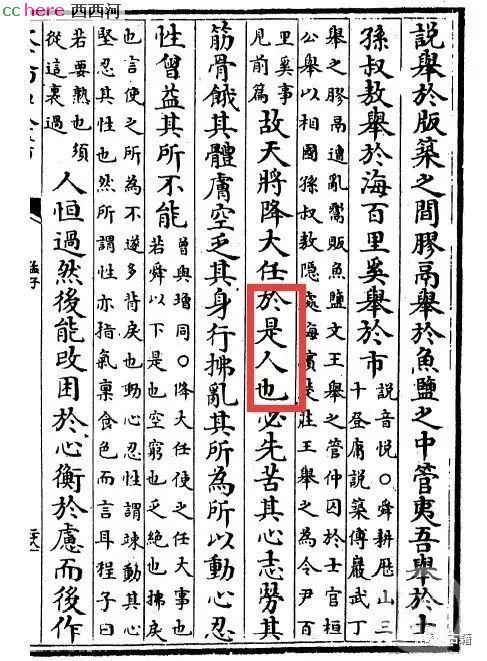 cc here 西西河
說舉於版築之間膠鬲舉於魚鹽之中管夷吾舉於士
孫叔敖舉於海百里奚舉於市
說音悅○舜耕歷山三
十登庸說築傅巖武丁
舉之膠鬲遭亂鬻販魚鹽文王舉之管仲囚於士官桓
公舉以相國孫叔敖隱處海濱楚莊王舉之為令尹百
里奚事
見前篇
故天將降大任於是人也必先苦其心志勞其
筋骨餓其體膚空乏其身行拂亂其所為所以動心忍
性曾益其所不能
曾與增同○降大任使之任大事也
若舜以下是也空窮也乏絕也拂戾
也言使之所為不遂多背戾也動心忍性謂竦動其心
堅忍其性也然所謂性亦指氣稟食色而言耳程子曰
若要熟也須
從這裏過
人恒過然後能改困於心衡於慮而後作
孟子
古籍